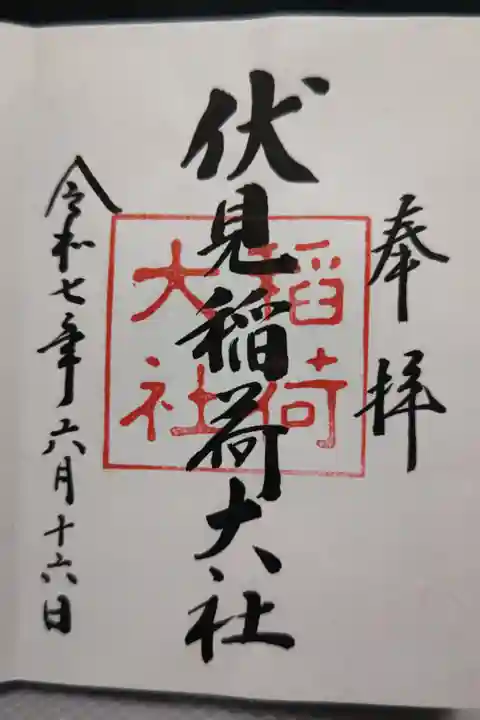 奉拝
伏見稲荷大社
稲荷
大社
令和七年六月十六日